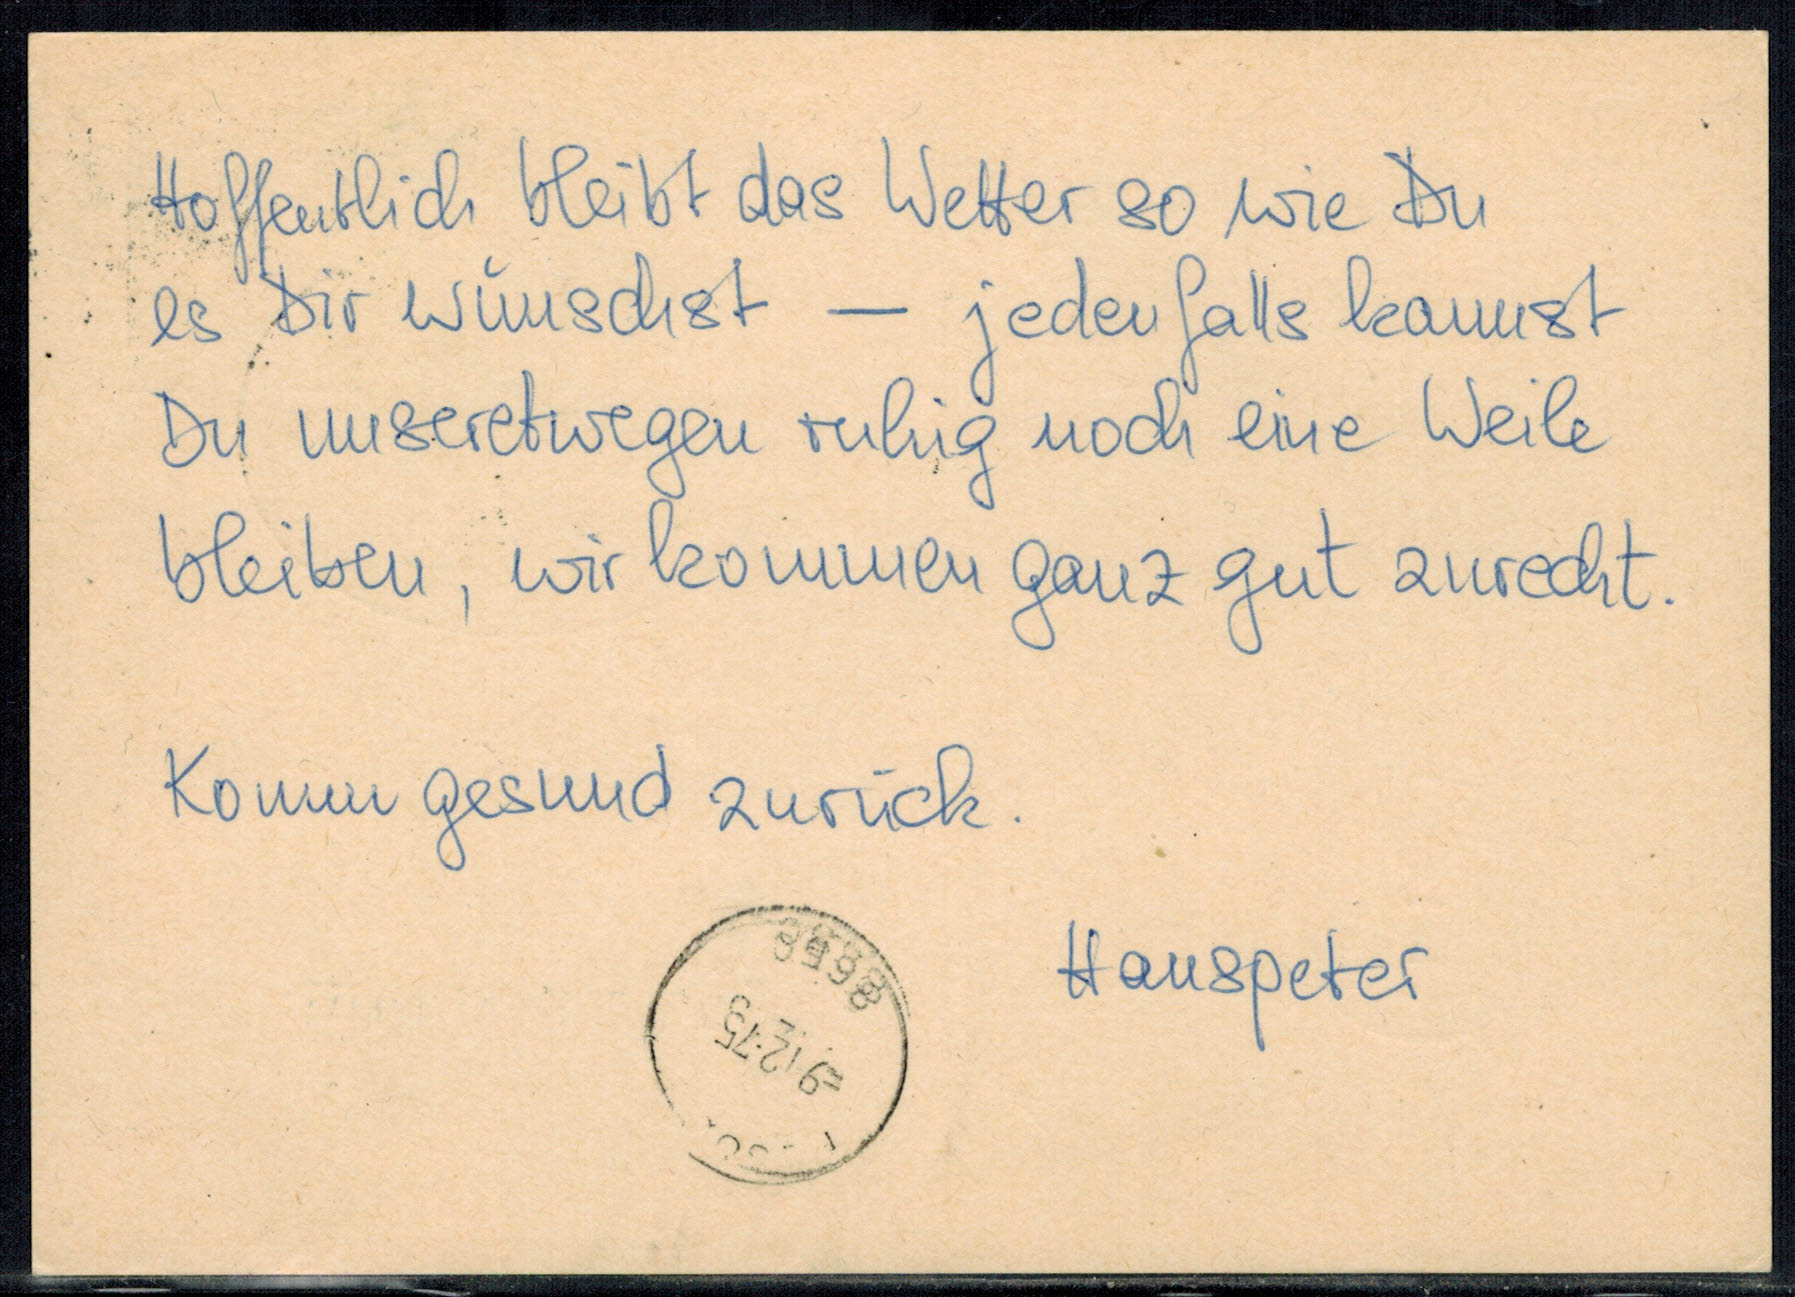 Hoffentlich bleibt das Wetter so wie Du
es Dir wünschst — jedenfalls kannst
Du unseretwegen ruhig noch eine Weile
bleiben, wir kommen ganz gut zurecht.
Komm gesund zurück.
Hanspeter
-9.12.75